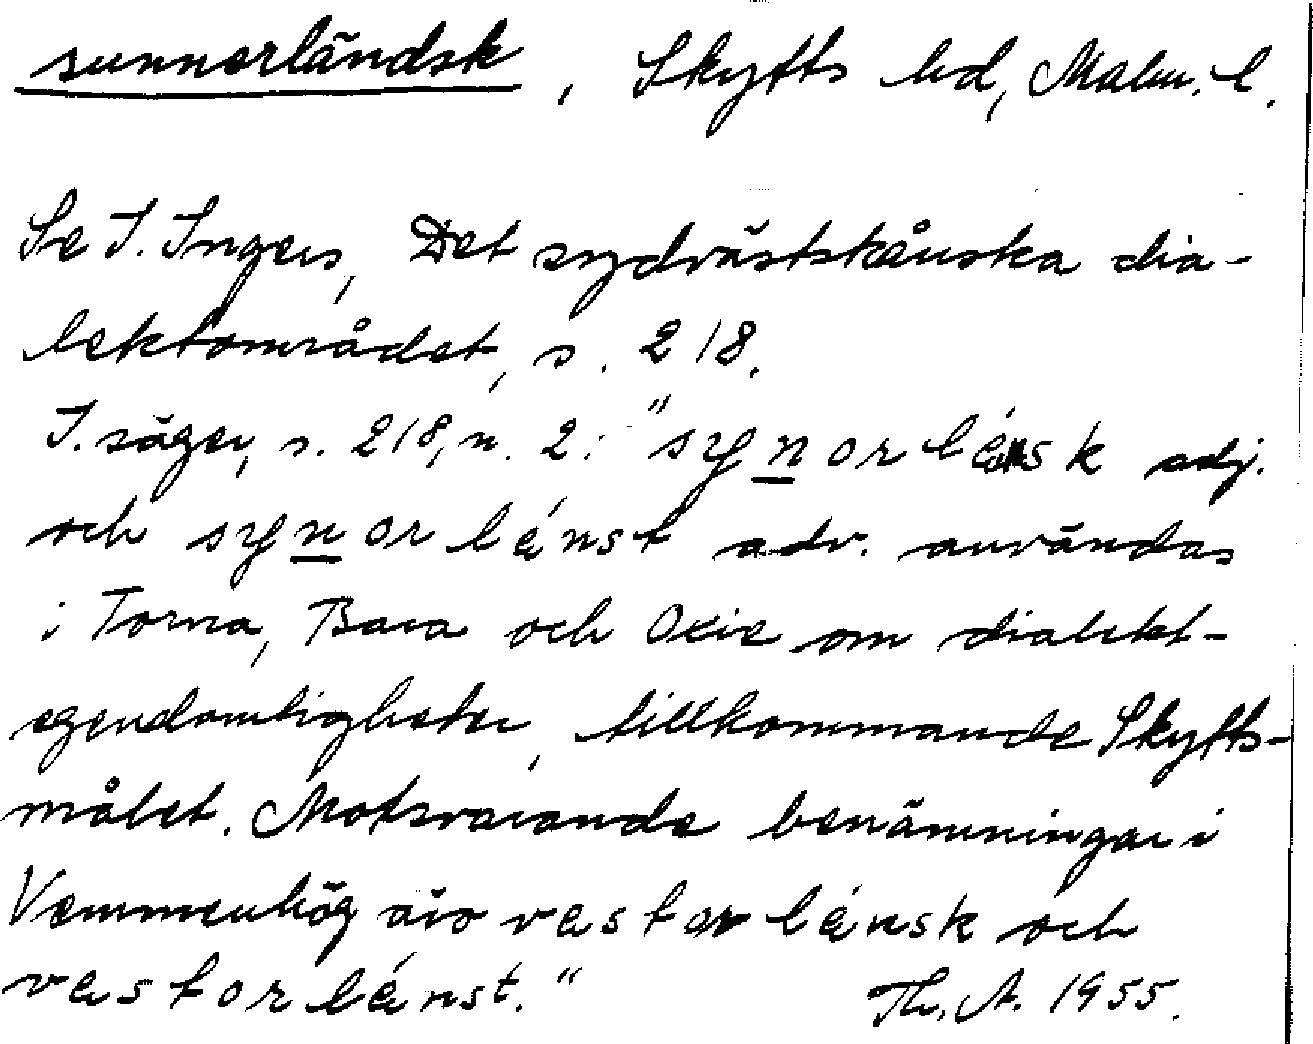 sunnerländsk, Skytts hd, Malm. l.
Se I. Ingers, Det sydvästskånska dia-
lektområdet, s. 218.
I. säger, s. 218, n. 2: "synorlénsk adj.
och synorlénst adv. användas
i Torna, Bara och Oxie om dialekt-
egendomligheter, tillkommande Skytts-
målet. Motsvarande benämningar i
Vemmenhög äro vestorlénsk och
vestorlénst."
Th. A. 1955.